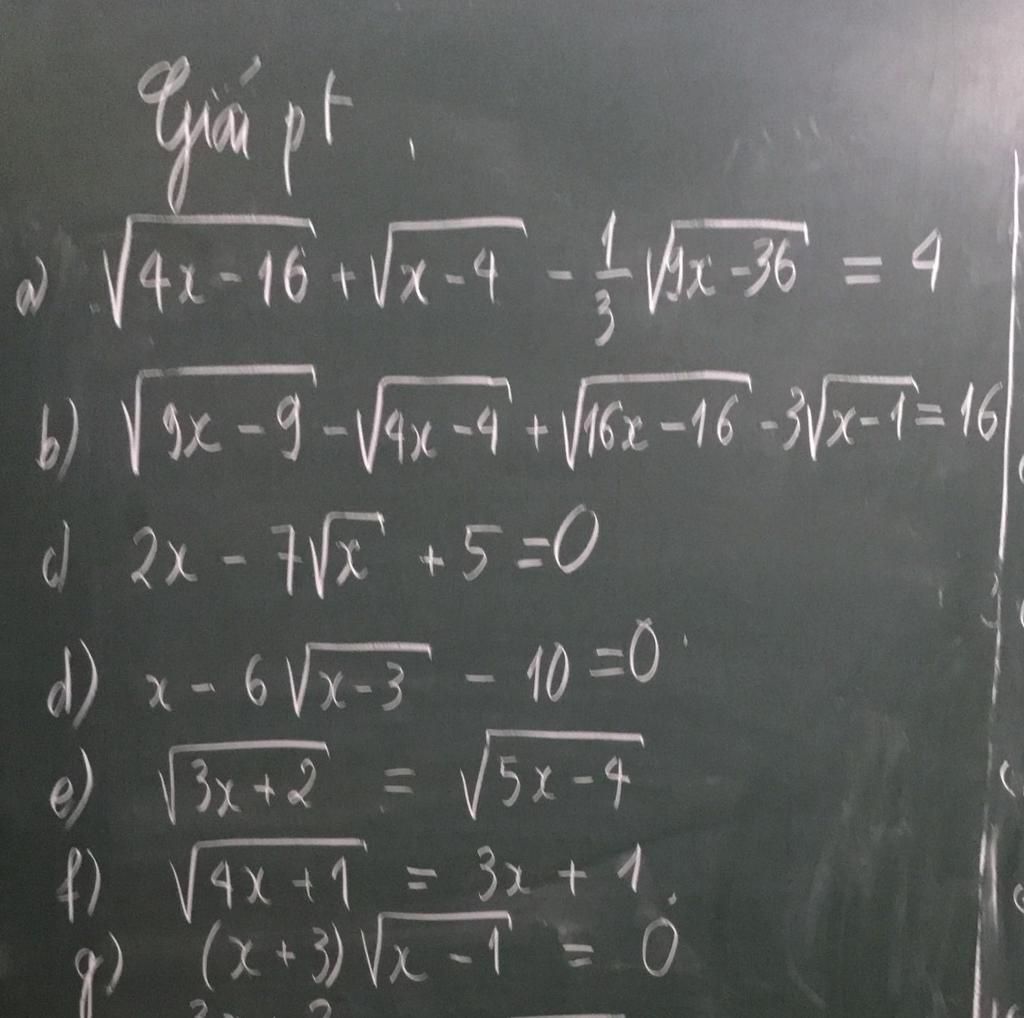 Giải pt
a) √(4x - 16) + √(x - 4) - 1/3 √(9x - 36) = 4
b) √(9x - 9) - √(4x - 4) + √(16x - 16) - 3√(x - 1) = 16
c) 2x - 7√x + 5 = 0
d) x - 6√(x - 3) - 10 = 0
e) √(3x + 2) = √(5x - 4)
f) √(4x + 1) = 3x + 1
g) (x + 3)√(x - 1) = 0